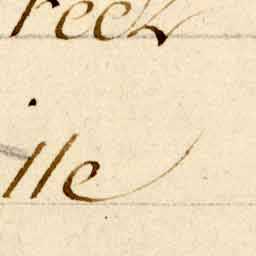 reek
ille